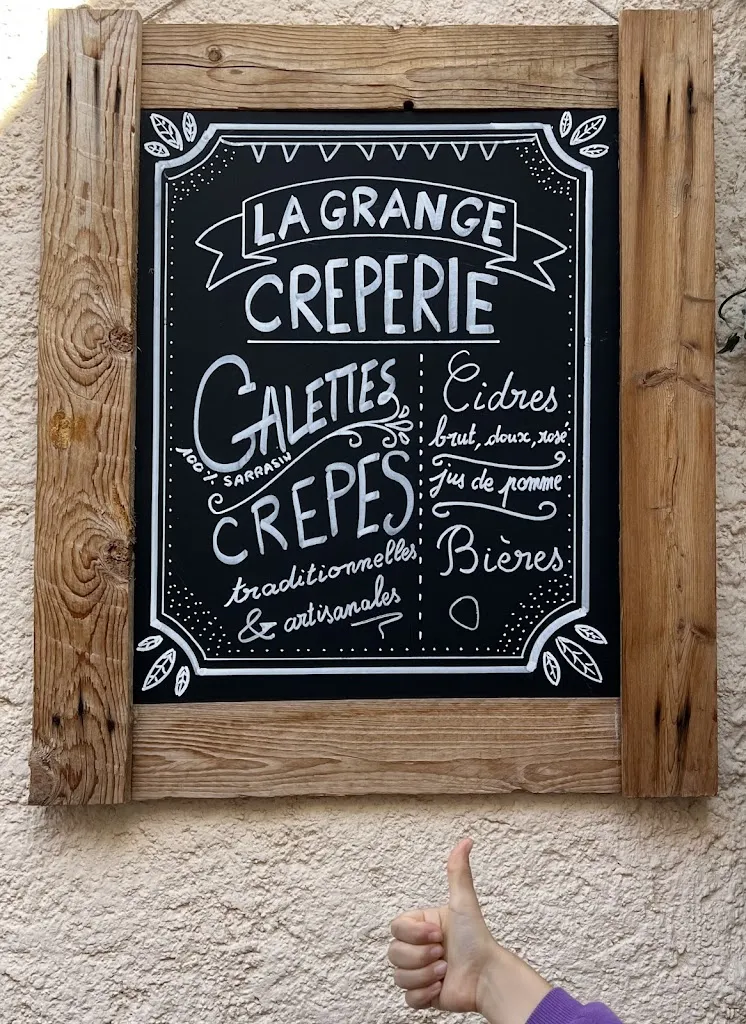 LA GRANGE
CREPERIE
GALETTES
100% SARRASIN
CREPES
traditionnelles
& artisanales
Cidres
brut, doux, rosé
jus de pomme
Bières